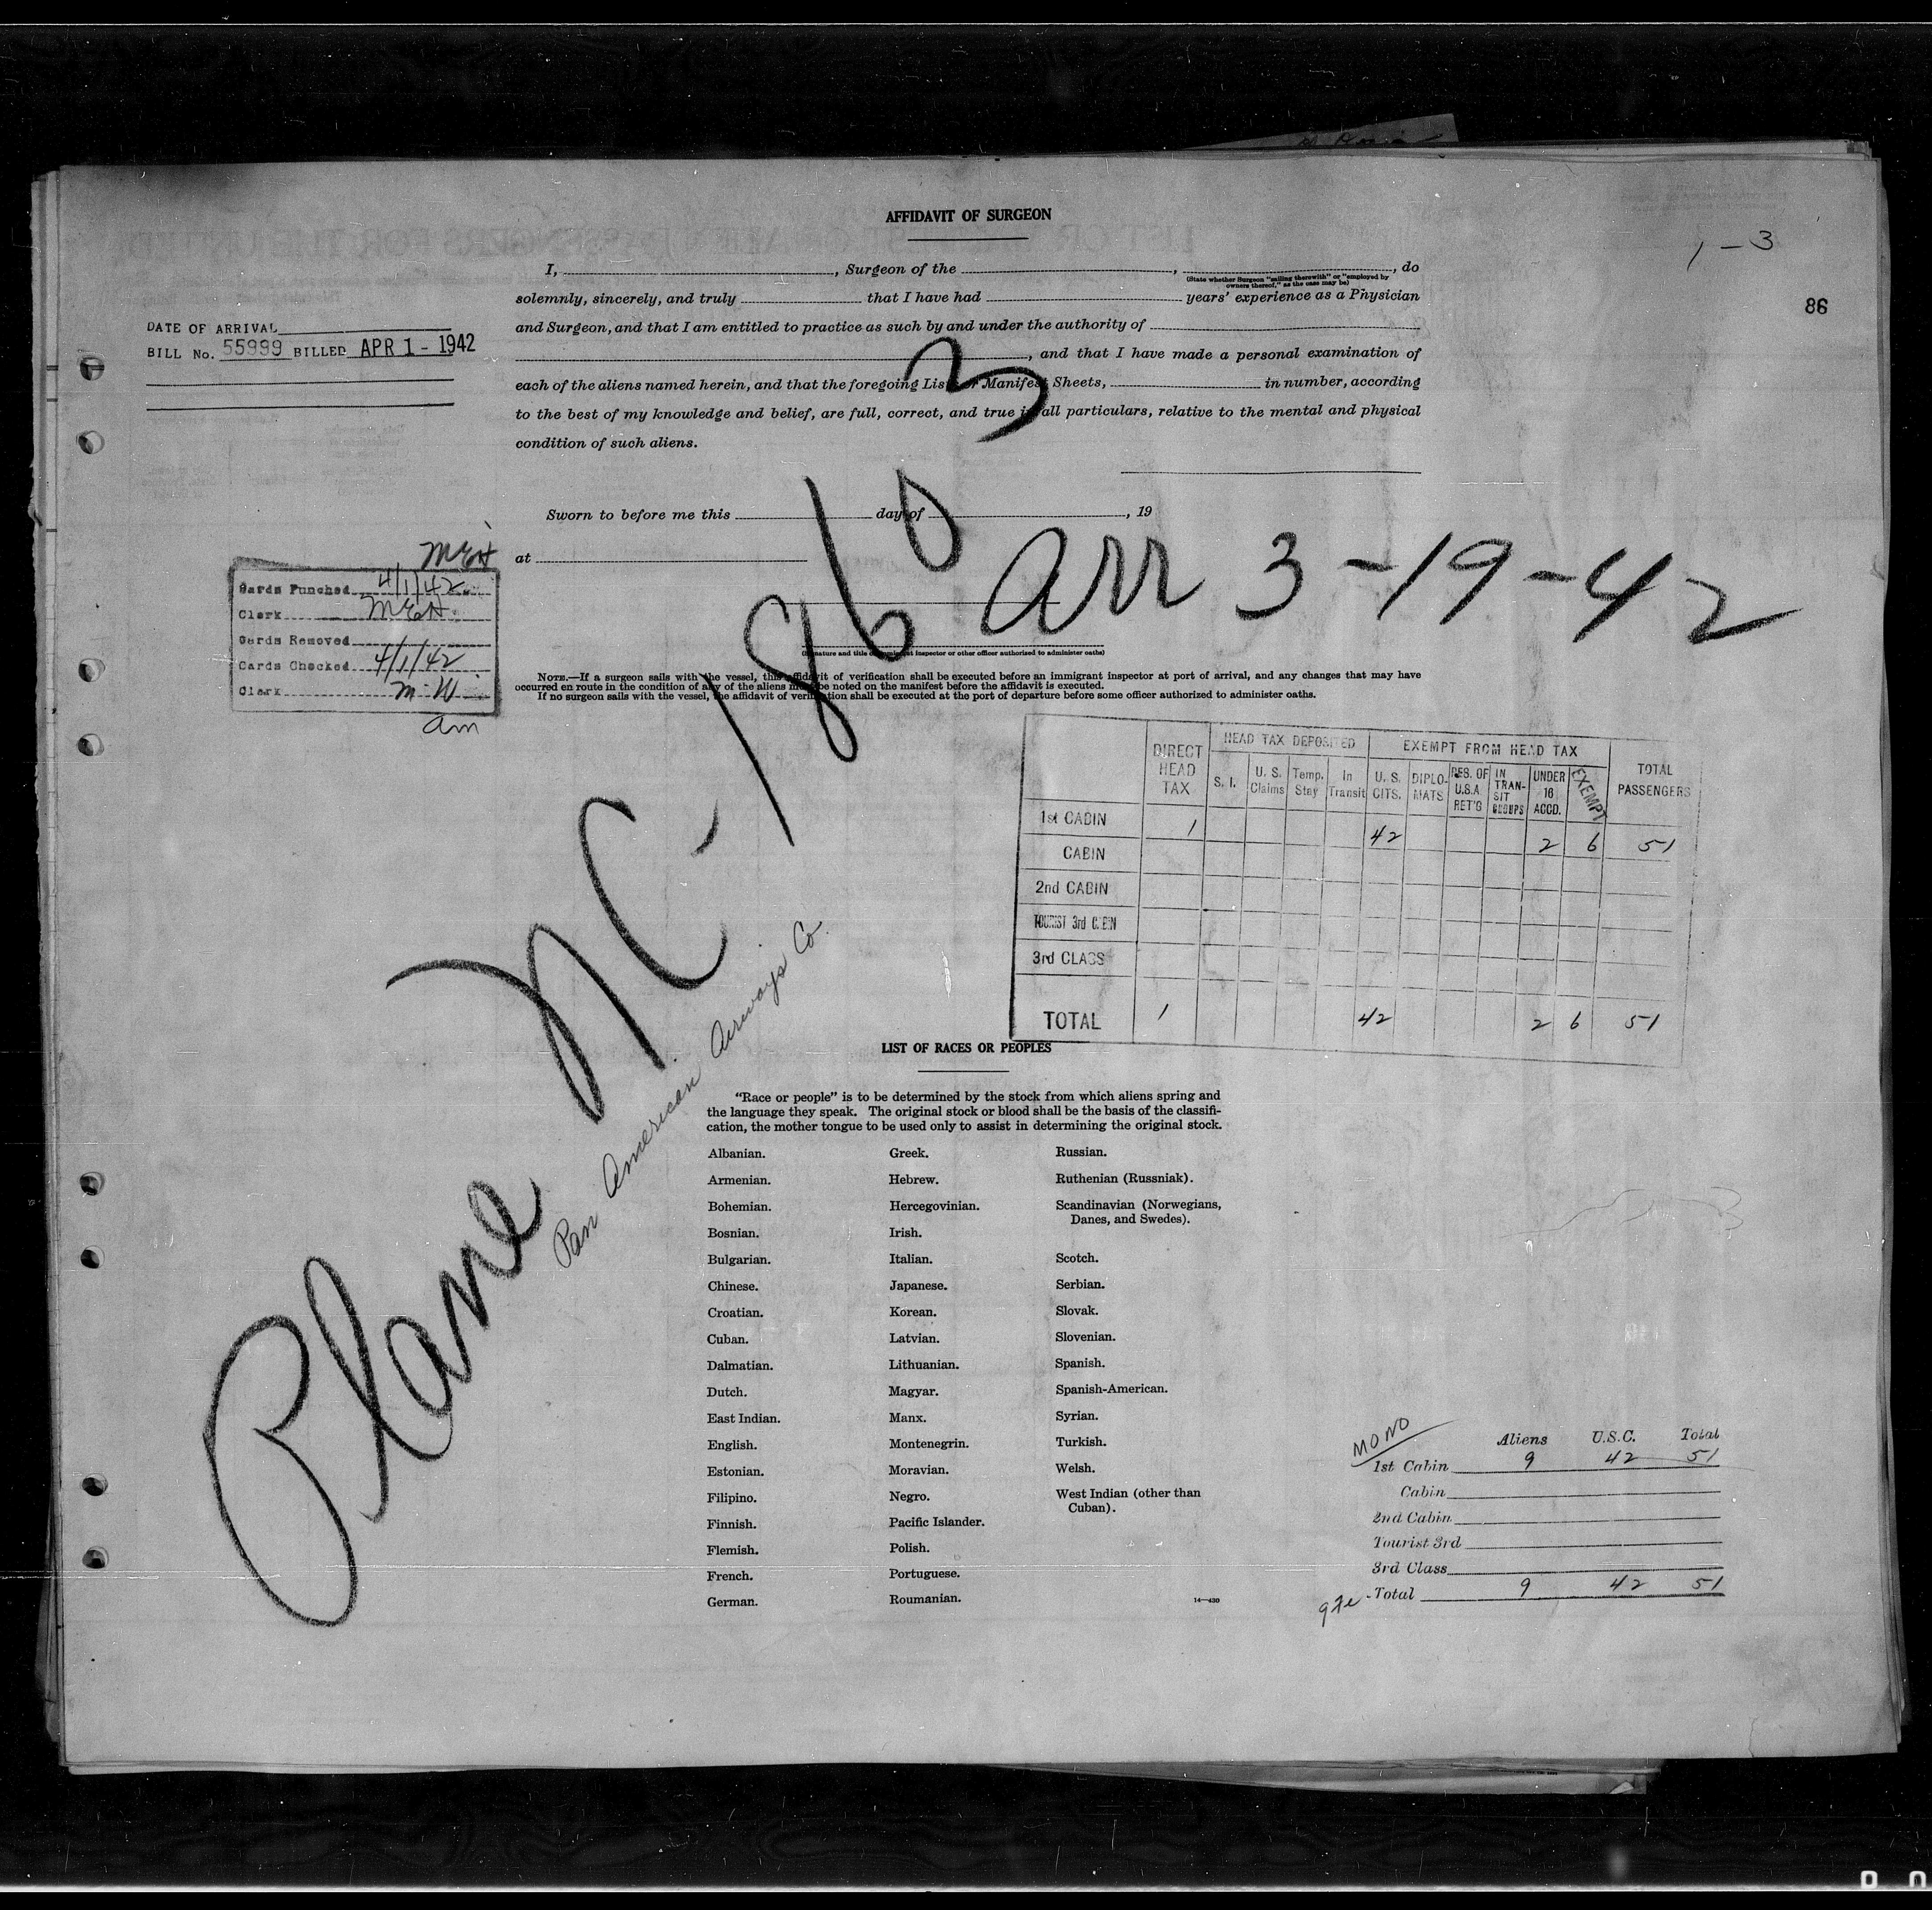 AFFIDAVIT OF SURGEON
1 - 3
86
I, , Surgeon of the , , do
(State whether Surgeon "sailing therewith" or "employed by
owners thereof," as the case may be)
solemnly, sincerely, and truly that I have had years' experience as a Physician
and Surgeon, and that I am entitled to practice as such by and under the authority of
, and that I have made a personal examination of
each of the aliens named herein, and that the foregoing Lists or Manifest Sheets, in number, according
to the best of my knowledge and belief, are full, correct, and true in all particulars, relative to the mental and physical
condition of such aliens.
DATE OF ARRIVAL
BILL No. 55999 BILLED APR 1 - 1942
Sworn to before me this day of , 19
at
(Signature and title of immigrant inspector or other officer authorized to administer oaths)
NOTE.—If a surgeon sails with the vessel, this affidavit of verification shall be executed before an immigrant inspector at port of arrival, and any changes that may have
occurred en route in the condition of any of the aliens must be noted on the manifest before the affidavit is executed.
If no surgeon sails with the vessel, the affidavit of verification shall be executed at the port of departure before some officer authorized to administer oaths.
MEH
Cards Punched 4/1/42
Clerk MEH
Cards Removed
Cards Checked 4/1/42
Clerk M.W
am
Plane NC-18603
Arr 3-19-42
Pan American Airways Co.
DIRECT HEAD TAX
HEAD TAX DEPOSITED
EXEMPT FROM HEAD TAX
TOTAL PASSENGERS
S. I. U. S. Claims Temp. Stay In Transit U. S. CITS. DIPLOMATS RES. OF U.S.A. RET'G IN TRANSIT GROUPS UNDER 16 ACCD. EXEMPT
1st CABIN 1 42 2 6 51
CABIN
2nd CABIN
TOURIST 3rd CABIN
3rd CLASS
TOTAL 1 42 2 6 51
LIST OF RACES OR PEOPLES
"Race or people" is to be determined by the stock from which aliens spring and
the language they speak. The original stock or blood shall be the basis of the classifi-
cation, the mother tongue to be used only to assist in determining the original stock.
Albanian.
Armenian.
Bohemian.
Bosnian.
Bulgarian.
Chinese.
Croatian.
Cuban.
Dalmatian.
Dutch.
East Indian.
English.
Estonian.
Filipino.
Finnish.
Flemish.
French.
German.
Greek.
Hebrew.
Hercegovinian.
Irish.
Italian.
Japanese.
Korean.
Latvian.
Lithuanian.
Magyar.
Manx.
Montenegrin.
Moravian.
Negro.
Pacific Islander.
Polish.
Portuguese.
Roumanian.
Russian.
Ruthenian (Russniak).
Scandinavian (Norwegians,
Danes, and Swedes).
Scotch.
Serbian.
Slovak.
Slovenian.
Spanish.
Spanish-American.
Syrian.
Turkish.
Welsh.
West Indian (other than
Cuban).
14—430
MONO
Aliens U.S.C. Total
1st Cabin 9 42 51
Cabin
2nd Cabin
Tourist 3rd
3rd Class
Total 9 42 51